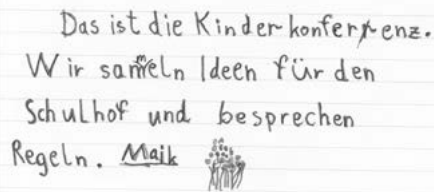 Das ist die Kinderkonferenz.
Wir sammeln Ideen für den
Schulhof und besprechen
Regeln. Maik